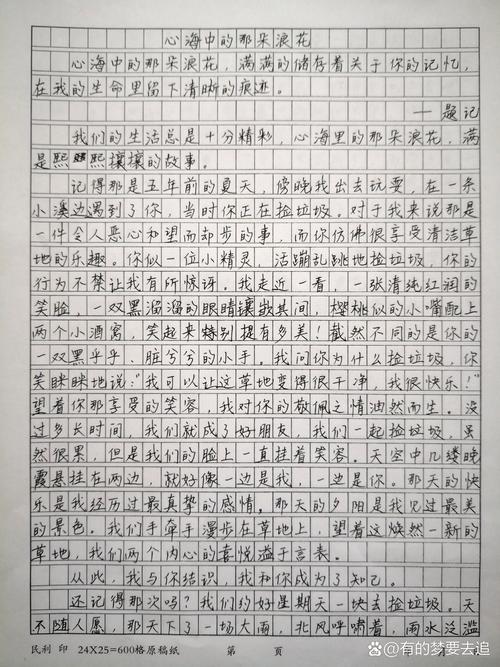 心海中的那朵浪花
心海中的那朵浪花,满满的储存着关于你的记忆,
在我的生命里留下清晰的痕迹。
——题记
我们的生活总是十分精彩,心海里的那朵浪花,满
是熙熙攘攘的故事。
记得那是五年前的夏天,傍晚我出去玩耍,在一条
小溪边遇到了你,当时你正在捡垃圾。对于我来说那是
一件令人恶心和望而却步的事,而你仿佛很享受清洁草
地的乐趣。你似一位小精灵,活蹦乱跳地捡垃圾,你的
行为不禁让我有所惊讶。我走近一看,一张清纯红润的
笑脸,一双黑溜溜的眼睛镶嵌其间,樱桃似的小嘴配上
两个小酒窝,笑起来特别提有多美!截然不同的是你的
一双黑乎乎、脏兮兮的小手。我问你为什么捡垃圾,你
笑眯眯地说:“我可以让这草地变得很干净,我很快乐!”
望着你那享受的笑容,我对你的敬佩之情油然而生。没
过多长时间,我们就成了好朋友,我们一起捡垃圾,虽
然很累,但是我们的脸上一直挂着笑容。天空中几缕晚
霞悬挂在两边,就好像一边是我,一边是你。那天的快
乐是我经历过最真挚的感情。那天的夕阳是我见过最美
的景色。我们手牵手漫步在草地上,望着这焕然一新的
草地,我们两个内心的喜悦溢于言表。
从此,我与你结识,我和你成为了知己。
还记得那次吗?我们约好星期天一块去捡垃圾。天
不随人愿,那天下了一场大雨,北风呼啸着,雨水泛滥
民利 印 24X25=600格原稿纸 第 页
@有的梦要去追